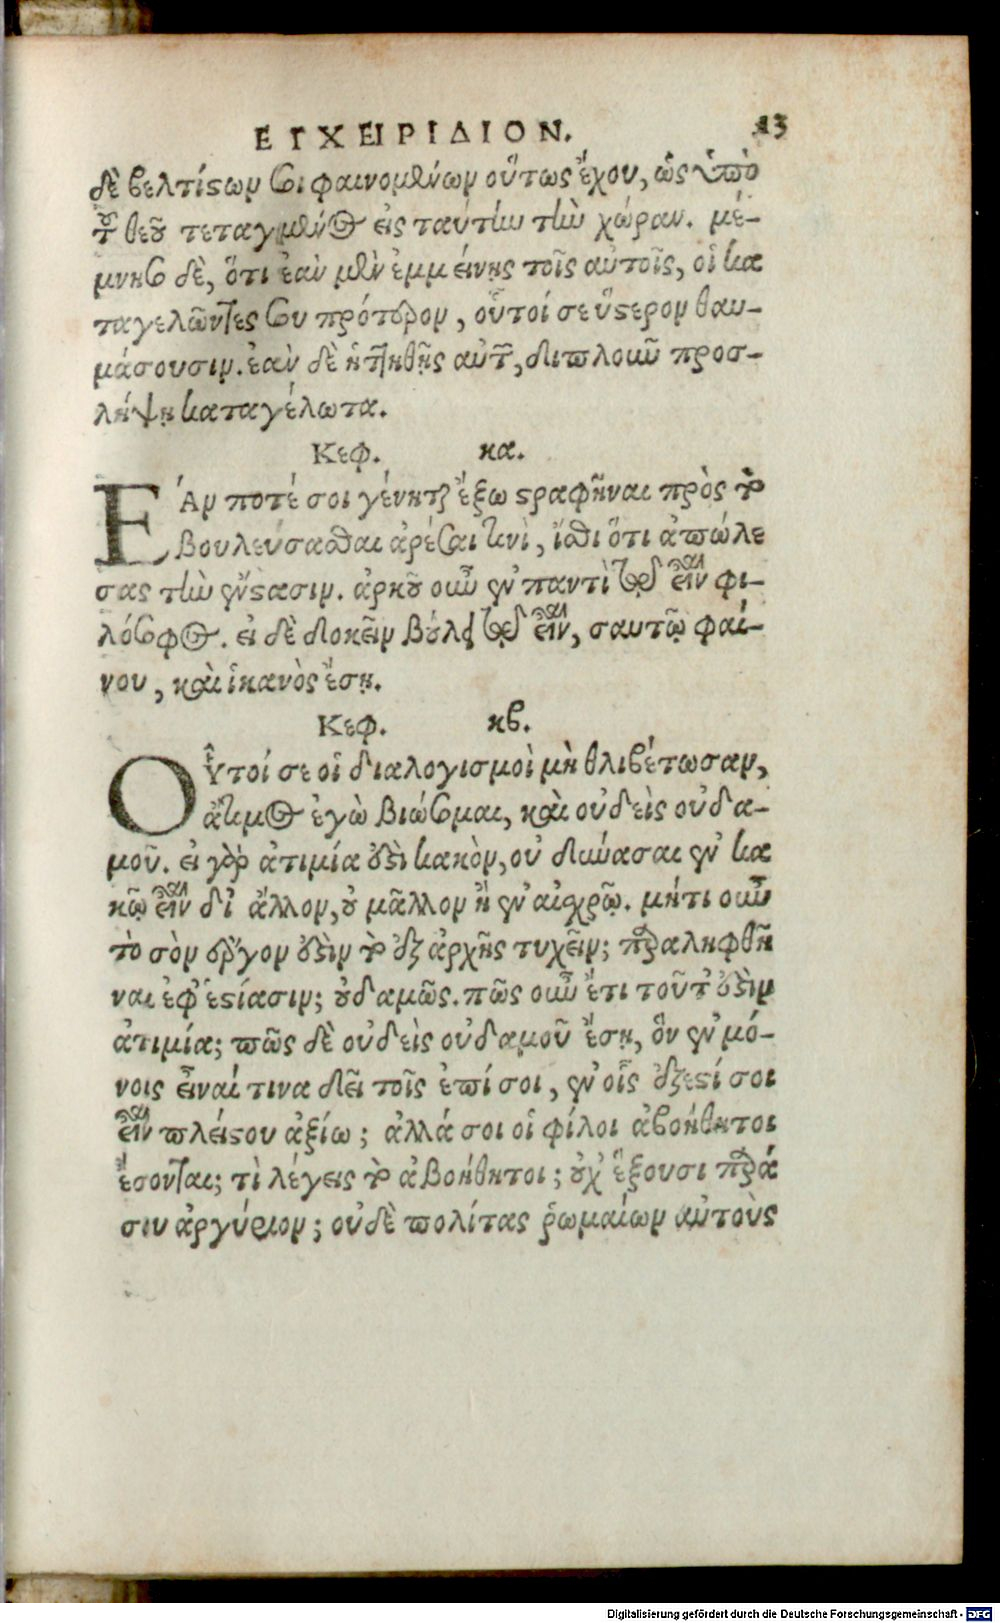 ΕΓΧΕΙΡΙΔΙΟΝ. 13
δὲ βελτίστων σοι φαινομένων οὕτως ἔχου, ὡς ὑπὸ
τοῦ θεοῦ τεταγμένος εἰς ταύτην τὴν χώραν. μέ-
μνησο δὲ, ὅτι ἐὰν μὲν ἐμμείνῃς τοῖς αὐτοῖς, οἱ κα
ταγελῶντες σου πρότερον, οὗτοί σε ὕστερον θαυ-
μάσουσιν. ἐὰν δὲ ἡττηθῇς αὐτῶν, διπλοῦν προσ-
λήψῃ καταγέλωτα.
Κεφ. κα.
ΕΆν ποτέ σοι γένηται ἔξω στραφῆναι πρὸς τὸ
βουλεύσασθαι ἀρέσαι τινὶ, ἴσθι ὅτι ἀπώλε
σας τὴν ἔνστασιν. ἀρκοῦ οὖν ἐν παντὶ τῷ εἶναι φι-
λόσοφος. εἰ δὲ δοκεῖν βούλει τῷ εἶναι, σαυτῷ φαί-
νου, καὶ ἱκανὸς ἔσῃ.
Κεφ. κβ.
ΟΥ̓τοί σε οἱ διαλογισμοὶ μὴ θλιβέτωσαν,
ἄτιμος ἐγὼ βιώσομαι, καὶ οὐδεὶς οὐδα-
μοῦ. εἰ γὰρ ἀτιμία ἐστὶ κακὸν, οὐ δύνασαι ἐν κα
κῷ εἶναι δι' ἄλλον, οὐ μᾶλλον ἢ ἐν αἰσχρῷ. μήτι οὖν
τὸ σὸν ἔργον ἐστὶν τὸ ἐξ ἀρχῆς τυχεῖν; παραληφθῆ
ναι ἐφ' ἑστίασιν; οὐδαμῶς. πῶς οὖν ἔτι τοῦτ' ἐστὶν
ἀτιμία; πῶς δὲ οὐδεὶς οὐδαμοῦ ἔσῃ, ὃν ἐν μό-
νοις εἶναί τινα δεῖ τοῖς ἐπί σοι, ἐν οἷς ἔξεστί σοι
εἶναι πλείστου ἀξίῳ; ἀλλά σοι οἱ φίλοι ἀβοήθητοι
ἔσονται; τὶ λέγεις τὸ ἀβοήθητοι; οὐχ ἕξουσι παρά
σου ἀργύριον; οὐδὲ πολίτας ῥωμαίων αὐτοὺς
Digitalisierung gefördert durch die Deutsche Forschungsgemeinschaft - DFG